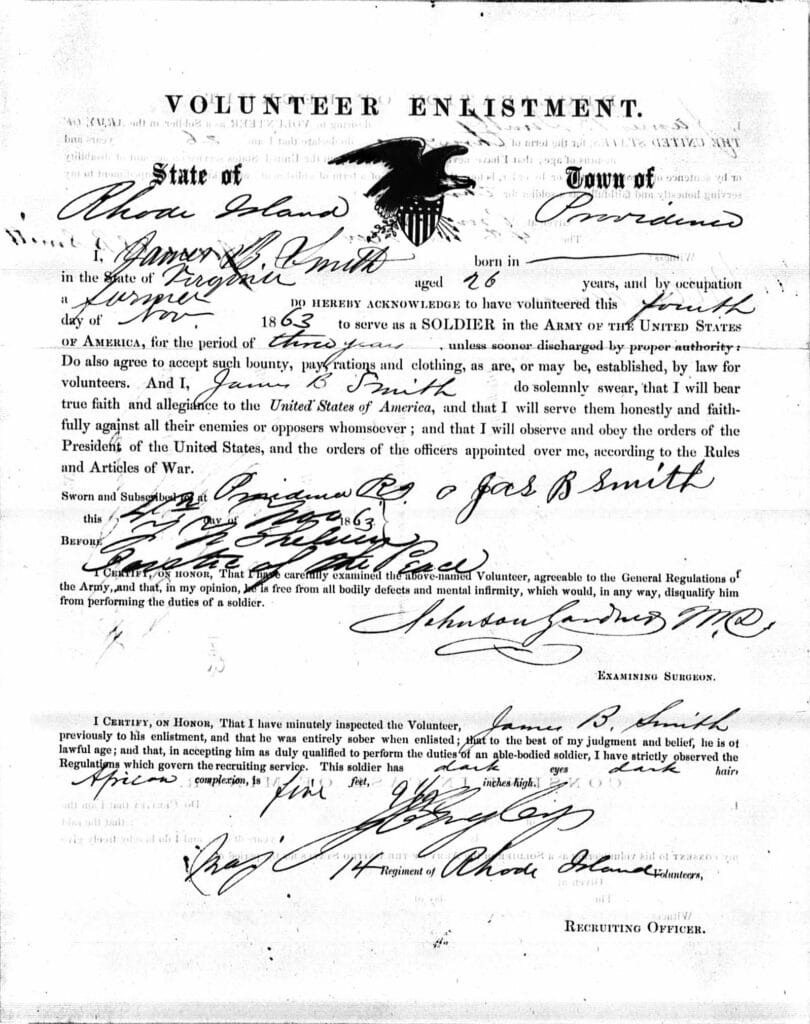 VOLUNTEER ENLISTMENT.
State of Town of
Rhode Island Providence
I, James B. Smith born in
in the State of Virginia aged 26 years, and by occupation
a farmer DO HEREBY ACKNOWLEDGE to have volunteered this fourth
day of Nov 1863 to serve as a SOLDIER in the ARMY OF THE UNITED STATES
OF AMERICA, for the period of three years, unless sooner discharged by proper authority:
Do also agree to accept such bounty, pay, rations and clothing, as are, or may be, established, by law for
volunteers. And I, James B Smith do solemnly swear, that I will bear
true faith and allegiance to the United States of America, and that I will serve them honestly and faith-
fully against all their enemies or opposers whomsoever; and that I will observe and obey the orders of the
President of the United States, and the orders of the officers appointed over me, according to the Rules
and Articles of War.
Sworn and Subscribed to at Providence R I Jas B Smith
this day of Nov 1863
BEFORE
Justice of the Peace
I CERTIFY, ON HONOR, That I have carefully examined the above-named Volunteer, agreeable to the General Regulations of
the Army, and that, in my opinion, he is free from all bodily defects and mental infirmity, which would, in any way, disqualify him
from performing the duties of a soldier.
Johnson Gardner M.D.
EXAMINING SURGEON.
I CERTIFY, ON HONOR, That I have minutely inspected the Volunteer, James B. Smith
previously to his enlistment, and that he was entirely sober when enlisted; that to the best of my judgment and belief, he is of
lawful age; and that, in accepting him as duly qualified to perform the duties of an able-bodied soldier, I have strictly observed the
Regulations which govern the recruiting service. This soldier has dark eyes dark hair,
African complexion, is five feet, inches high.
Maj 14 Regiment of Rhode Island Volunteers,
RECRUITING OFFICER.